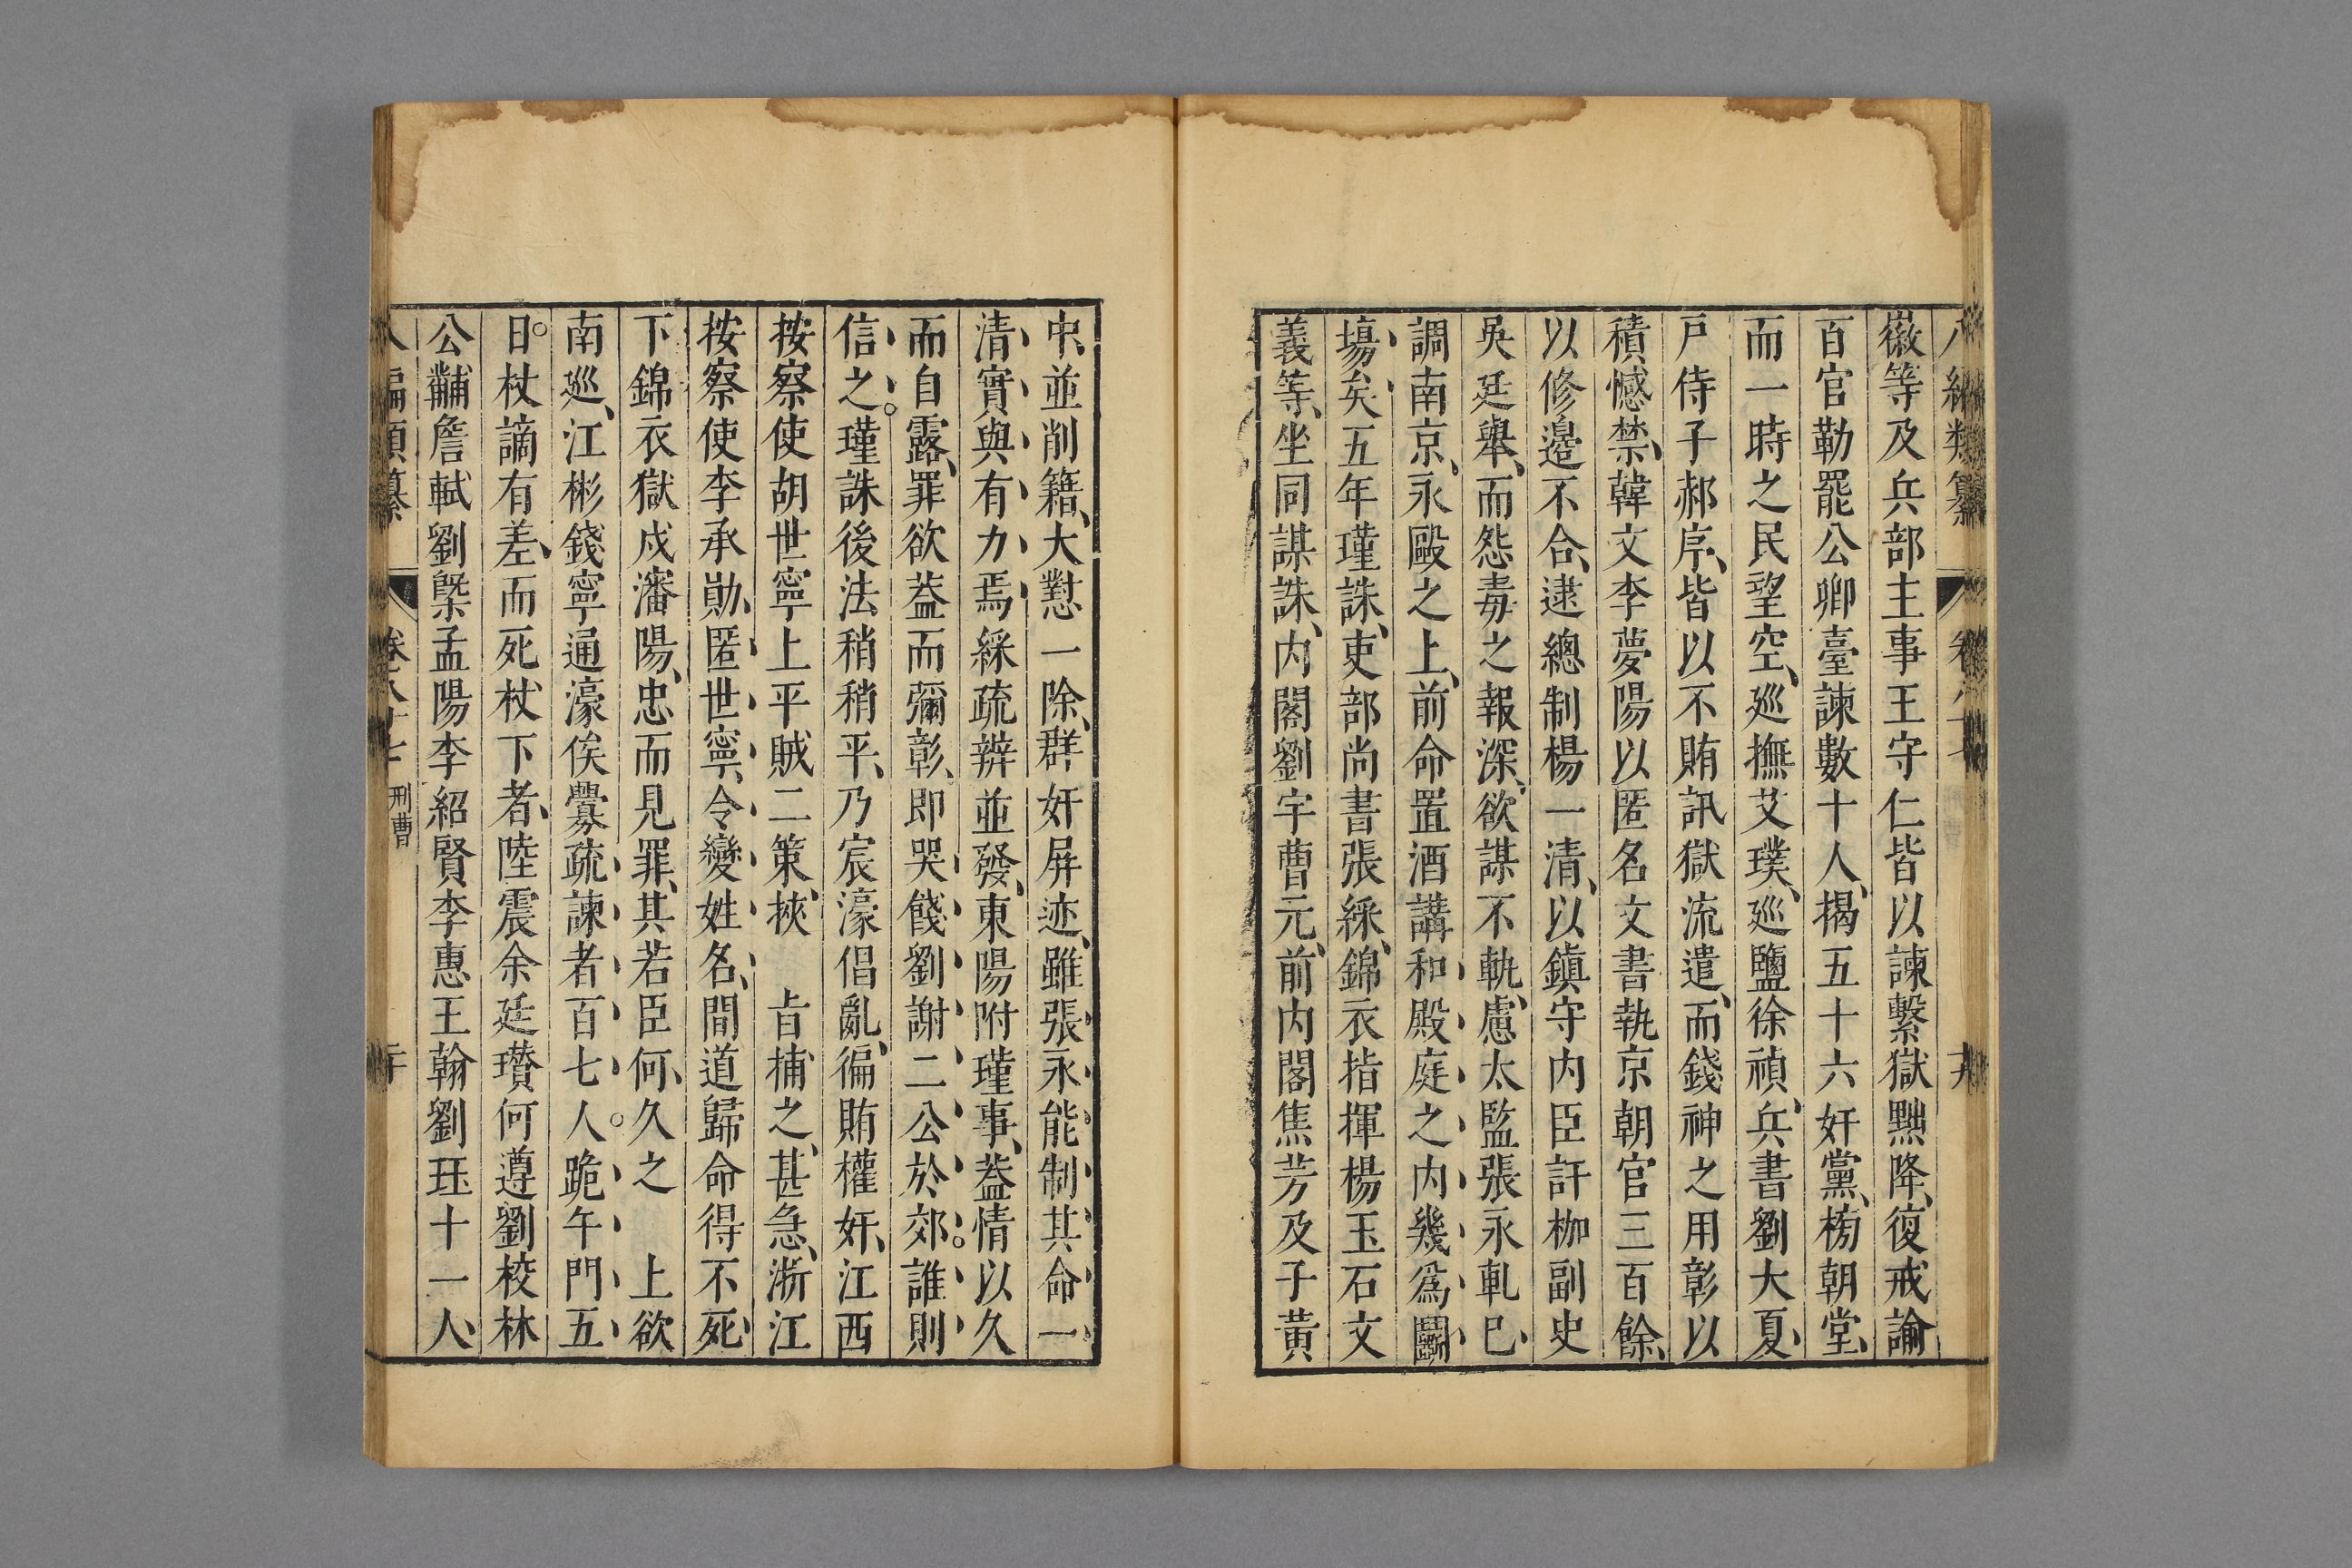 八編類纂 卷八十七 十九
徽等及兵部主事王守仁皆以諫繫獄黜降復戒諭
百官勒罷公卿臺諫數十人揭五十六奸黨榜朝堂
而一時之民望空廵撫艾璞廵鹽徐禎兵書劉大夏
戶侍子郝序皆以不賄訊獄流遣而錢神之用彰以
積憾禁韓文李夢陽以匿名文書執京朝官三百餘
以修邊不合逮總制楊一清以鎮守內臣訐枷副史
吳廷舉而怨毒之報深欲謀不軌慮太監張永軋巳
調南京永毆之上前命置酒講和殿庭之內幾爲鬭
塲矣五年瑾誅吏部尚書張綵錦衣指揮楊玉石文
義等坐同謀誅內閣劉宇曹元前內閣焦芳及子黃
中並削籍大憝一除群奸屏迹雖張永能制其命一
清實與有力焉綵疏辨並發東陽附瑾事葢情以久
而自露罪欲葢而彌彰即哭餞劉謝二公於郊誰則
信之瑾誅後法稍稍平乃宸濠倡亂徧賄權奸江西
按察使胡世寧上平賊二策挾 㫖捕之甚急浙江
按察使李承勛匿世寧令變姓名間道歸命得不死
下錦衣獄戍瀋陽忠而見罪其若臣何久之 上欲
南廵江彬錢寧通濠俟釁疏諫者百七人跪午門五
日杖謫有差而死杖下者陸震余廷瓚何遵劉校林
公黼詹軾劉槩孟陽李紹賢李惠王翰劉珏十一人
八編類纂 卷八十七 刑曹 二十